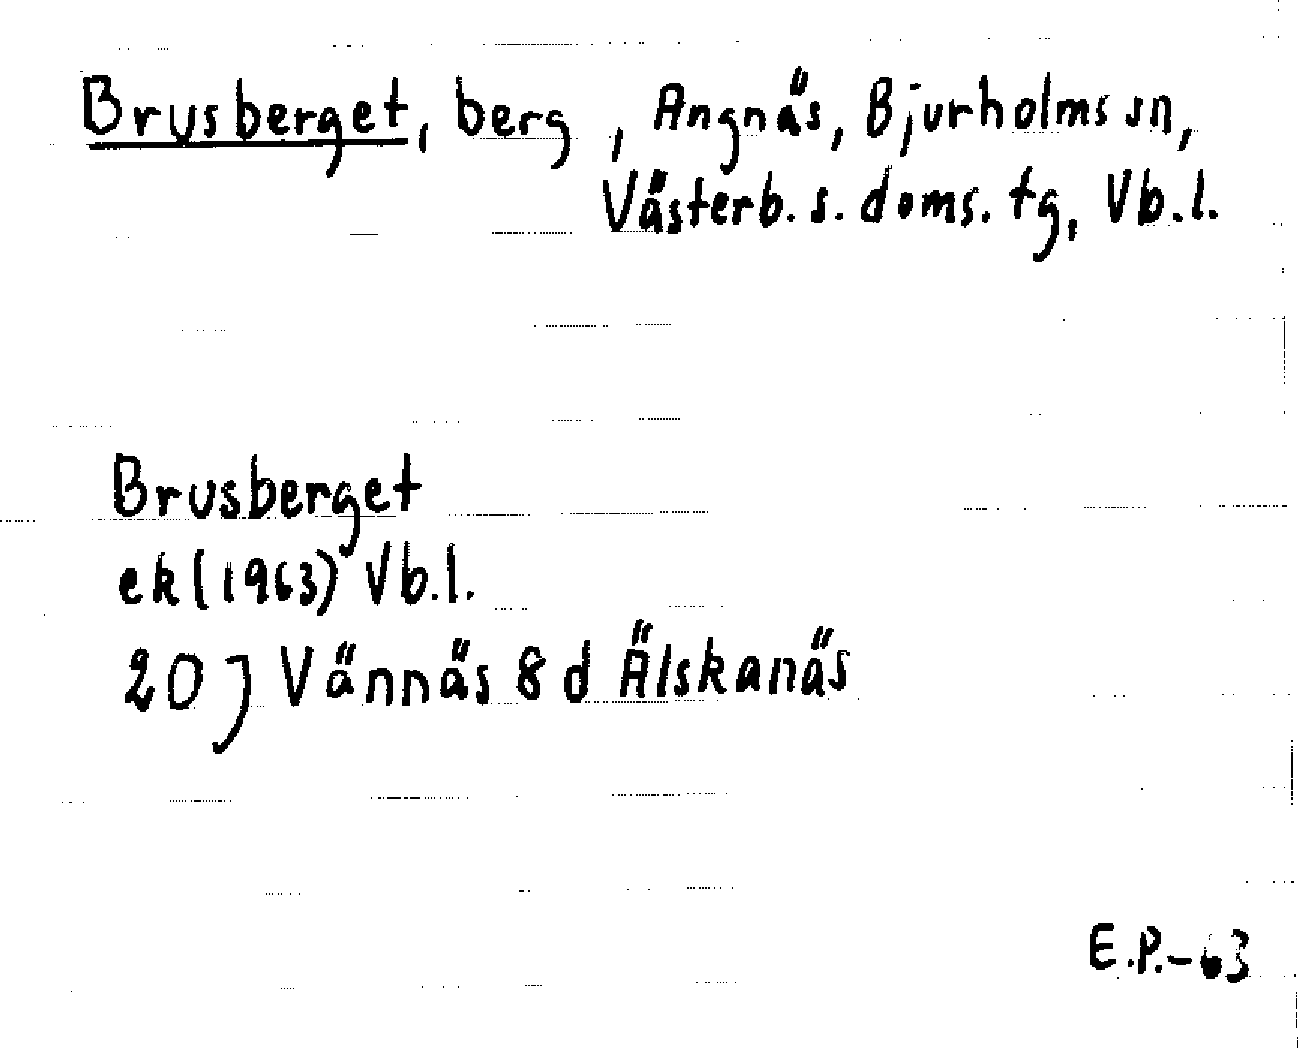 Brusberget, berg , Angnäs, Bjurholms sn,
Västerb. s. doms. tg, Vb.l.
Brusberget
ek (1963) Vb.l.
20 J Vännäs 8 d Älskanäs
E.P.-63